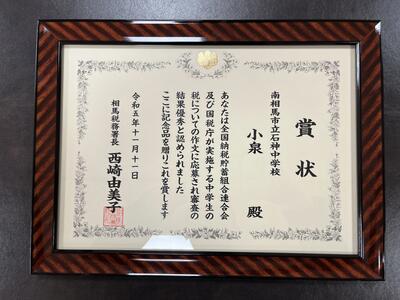 賞状
南相馬市立石神中学校
小泉 殿
あなたは全国納税貯蓄組合連合会
及び国税庁が実施する中学生の
税についての作文に応募され審査の
結果優秀と認められました
ここに記念品を贈りこれを賞します
令和五年十一月十一日
相馬税務署長 西崎由美子